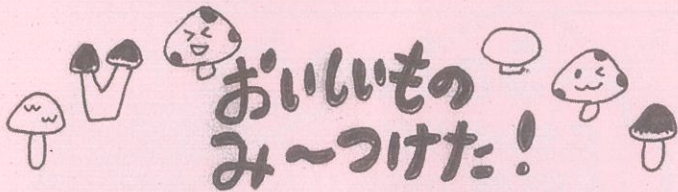 おいしいもの
み～つけた！